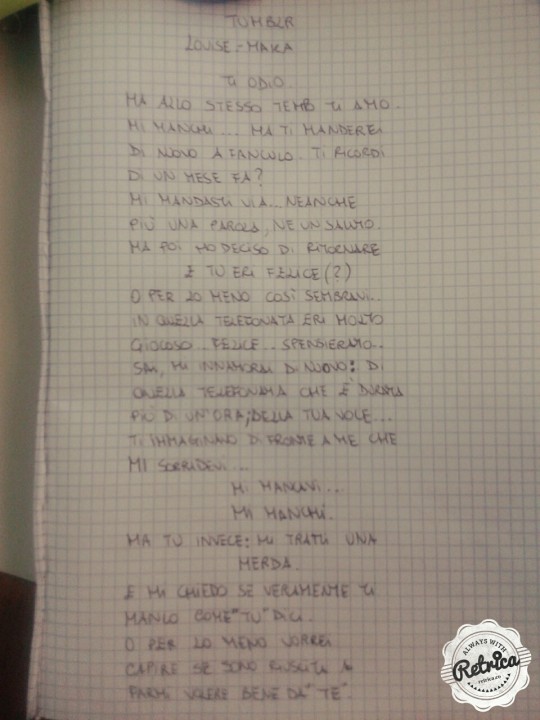 TUMBLR
LOUISE-MAKA
TI ODIO.
MA ALLO STESSO TEMPO TI AMO.
MI MANCHI... MA TI MANDEREI
DI NUOVO A FANCULO. TI RICORDI
DI UN MESE FA?
MI MANDASTI VIA... NEANCHE
PIÙ UNA PAROLA, NE UN SALUTO.
MA POI HO DECISO DI RITORNARE
E TU ERI FELICE (?)
O PER LO MENO COSÌ SEMBRAVI...
IN QUELLA TELEFONATA ERI MOLTO
GIOCOSO.. FELICE.. SPENSIERATO..
SAI, MI INNAMORAI DI NUOVO: DI
QUELLA TELEFONATA CHE È DURATA
PIÙ DI UN'ORA; DELLA TUA VOCE...
TI IMMAGINAVO DI FRONTE A ME CHE
MI SORRIDEVI...
MI MANCAVI...
MI MANCHI.
MA TU INVECE: MI TRATTI UNA
MERDA.
E MI CHIEDO SE VERAMENTE TI
MANCO COME "TU" DICI.
O PER LO MENO VORREI
CAPIRE SE SONO RIUSCITA A
FARMI VOLERE BENE DA "TE".
ALWAYS WITH
Retrica
retrica.co